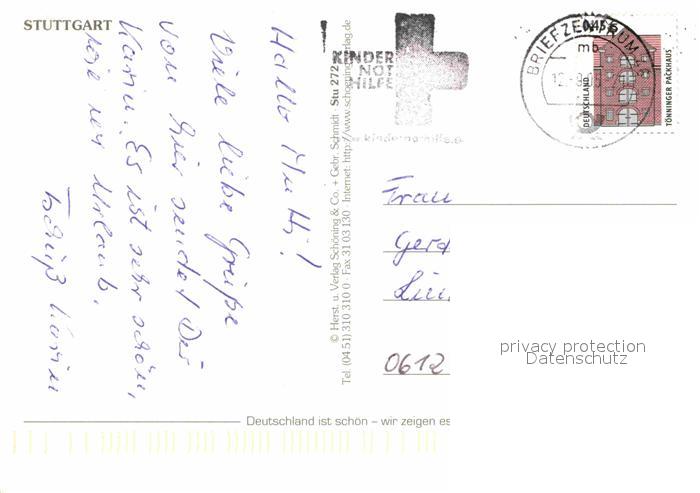 STUTTGART
Hallo Mutti!
Viele liebe Grüße
von hier sendet Dir
Karin. Es ist sehr schön,
wie im Urlaub.
Tschüß Karin
© Herst. u. Verlag Schöning & Co. + Gebr. Schmidt Stu 272
Tel. (04 51) 310 310 0 · Fax 31 03 130 Internet: http://www.schoening-verlag.de
KINDER
NOT
HILFE
BRIEFZENTRUM
mb
DEUTSCHLAND
TÖNNINGER PACKHAUS
Frau
Gerd
0612
privacy protection
Datenschutz
Deutschland ist schön – wir zeigen es